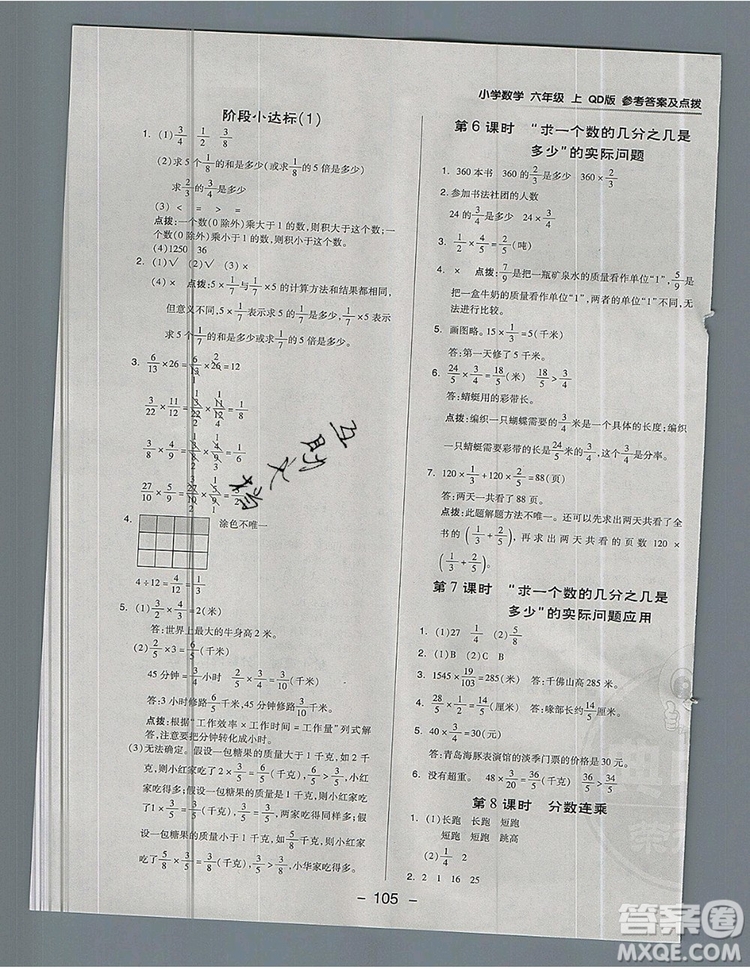 小学数学 六年级 上 QD版 参考答案及点拨
阶段小达标(1)
1. (1) 3/4 1/3 3/4
(2)求 5 个 1/8 的和是多少(或求 1/8 的 5 倍是多少)
求 2/3 的 3/4 是多少
(3)< = > =
点拨:一个数(0 除外)乘大于 1 的数,则积大于这个数;一个数(0 除外)乘小于 1 的数,则积小于这个数。
(4)1250 36
2. (1)√ (2)√ (3)×
(4)× 点拨:5×1/7与1/7×5 的计算方法和结果相同,
但意义不同,5×1/7表示求 5 的1/7是多少,1/7×5 表示求
5 个1/7的和是多少(或求1/7的 5 倍是多少)。
3. 6/13×26=6/13×26=12
3/22×11/12=3/22×11/12=1/8
3/8×4/9=3/8×4/9=1/6
27/10×5/9=27/10×5/9=3/2
4. 涂色不唯一
4÷12=4/12=1/3
5. (1)8/3×3/4=2(米)
答:世界上最大的牛身高 2 米。
(2)2/5×3=6/5(千米)
45 分钟=3/4小时 2/5×3/4=3/10(千米)
答:3 小时修路6/5千米,45 分钟修路3/10千米。
点拨:根据“工作效率×工作时间=工作量”列式解答,注意要把分钟转化成小时。
(3)无法确定。假设一包糖果的质量为 2 千克,小红家
吃了 2×3/5=6/5(千克),6/5>3/5,小红家吃得多。假设
一包糖果的质量为 1 千克,小红家吃了 1×3/5=3/5(千
克),3/5=3/5,两家吃得同样多。假设一包糖果的质量
为1/2千克,小红家吃了1/2×3/5=3/10(千克),3/10<3/5,小华家吃得多。
第 6 课时 “求一个数的几分之几是
多少”的实际问题
1. 360 本书 360 的2/3是多少 360×2/3
2. 参加书法社团的人数
24 的3/4是多少 24×3/4
3. 1/2×4/5=2/5(吨)
4. × 点拨:7/9是把一瓶矿泉水的质量看作单位“1”,5/9
是把一盒牛奶的质量看作单位“1”,两者的单位“1”不同,无法进行比较。
5. 画图略。15×1/3=5(千米)
答:第一天修了 5 千米。
6. 24/5×3/4=18/5(米) 18/5>3/4
答:蜻蜓用的彩带长。
点拨:编织一只蝴蝶需要的3/4米是一个具体的长度;编织
一只蜻蜓需要彩带长24/5米的3/4,这里的3/4是分率。
7. 120×1/3+120×2/5=88(页)
答:两天一共看了 88 页。
点拨:此题解题方法不唯一。还可以先求出两天共看了全书
的(1/3+2/5),再求出两天共看的页数 120×
(1/3+2/5)=88(页)。
第 7 课时 “求一个数的几分之几是
多少”的实际问题应用
1. (1)27 1/4 (2)5/8
2. (1)B (2)C B
3. 1545×19/103=285(米) 答:千佛山高 285 米。
4. 28/5×1/2=14/5(厘米) 答:喙部长约14/5厘米。
5. 40×3/4=30(元)
答:青岛海豚表演馆的淡季门票的价格是 30 元。
6. 没有超重。 48×3/20=36/5(千克) 36/5>34/5
第 8 课时 分数连乘
1. (1)长跑 长跑 短跑
短跑 短跑 跳高
(2)1/4 2
2. 2 1 16 25
互助文摘
- 105 -
答案圈
MXQE.COM